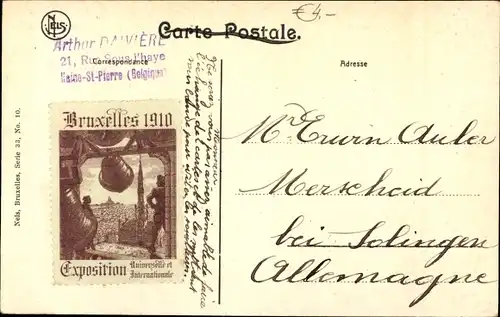 NELS
Carte Postale.
€4.-
Arthur DAIVIÈRE
21, Rue Sous l'haye
Haine-St-Pierre (Belgique)
Correspondance
Adresse
Nels, Bruxelles, Serie 33, No. 10.
Bruxelles 1910
Exposition Universelle et
Internationale
Monsieur
l'échange de cartes
Mr Erwin Auler
Merscheid
bei Solingen
Allemagne